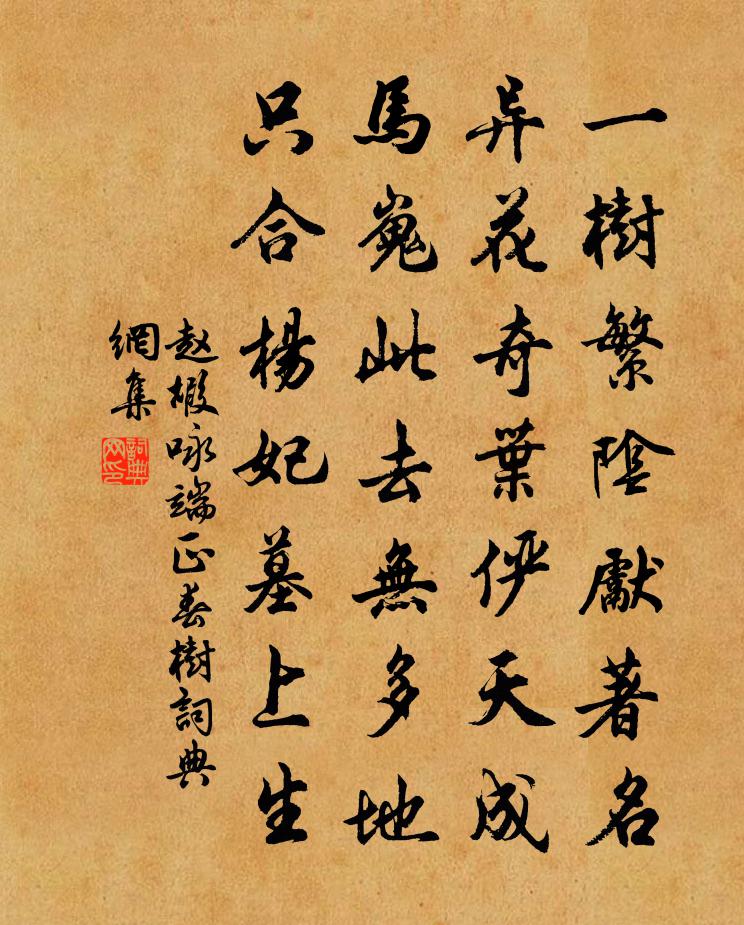 一樹繁陰獻著名
异花奇葉儼天成
馬嵬此去無多地
只合楊妃墓上生
赵嘏咏端正春樹詞典
網集
詞典
网印